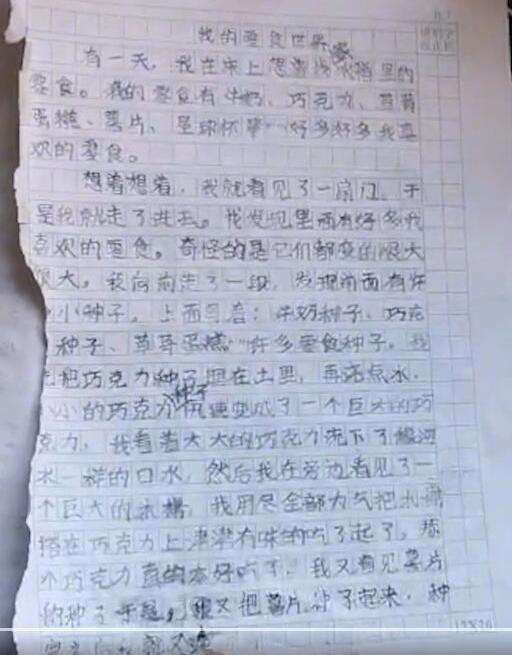 我的零食世界
有一天，我在床上想着我冰箱里的
零食。我的零食有牛奶、巧克力、草莓
蛋糕、薯片、星球杯等……好多好多我喜
欢的零食。
想着想着，我就看见了一扇门，于
是我就走了进去。我发现里面有好多我
喜欢的零食。奇怪的是它们都变的很大
很大。我向前走了一段，发现前面有许
小种子。上面写着：牛奶种子、巧克
种子、草莓蛋糕……许多零食种子。我
把巧克力种子埋在土里，再浇点水，
小的巧克力种子迅速变成了一个巨大的巧
克力，我看着大大的巧克力流下了像河
水一样的口水，然后我在旁边看见了一
个巨大的水槽，我用尽全部力气把水槽
搭在巧克力上津津有味的吃了起了，那
个巧克力真的太好吃了，我又看见薯片
的种子于是，我又把薯片种了起来，种